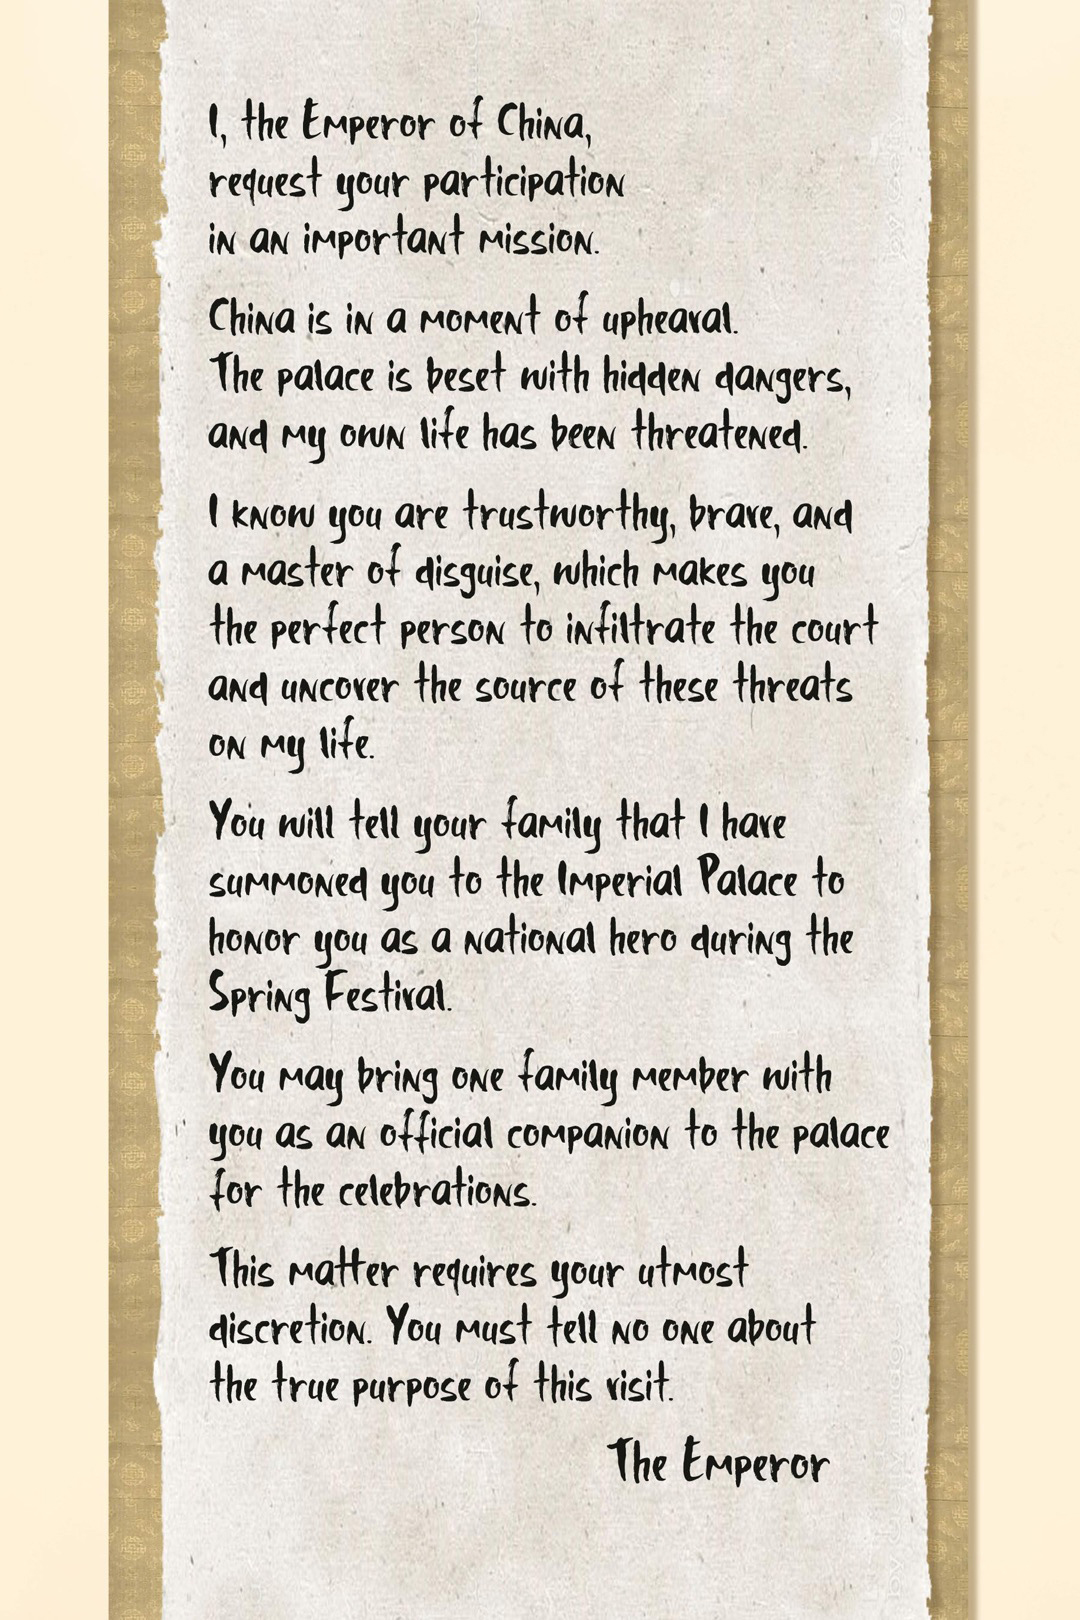 I, the Emperor of China,
request your participation
in an important mission.
China is in a moment of upheaval.
The palace is beset with hidden dangers,
and my own life has been threatened.
I know you are trustworthy, brave, and
a master of disguise, which makes you
the perfect person to infiltrate the court
and uncover the source of these threats
on my life.
You will tell your family that I have
summoned you to the Imperial Palace to
honor you as a national hero during the
Spring Festival.
You may bring one family member with
you as an official companion to the palace
for the celebrations.
This matter requires your utmost
discretion. You must tell no one about
the true purpose of this visit.
The Emperor